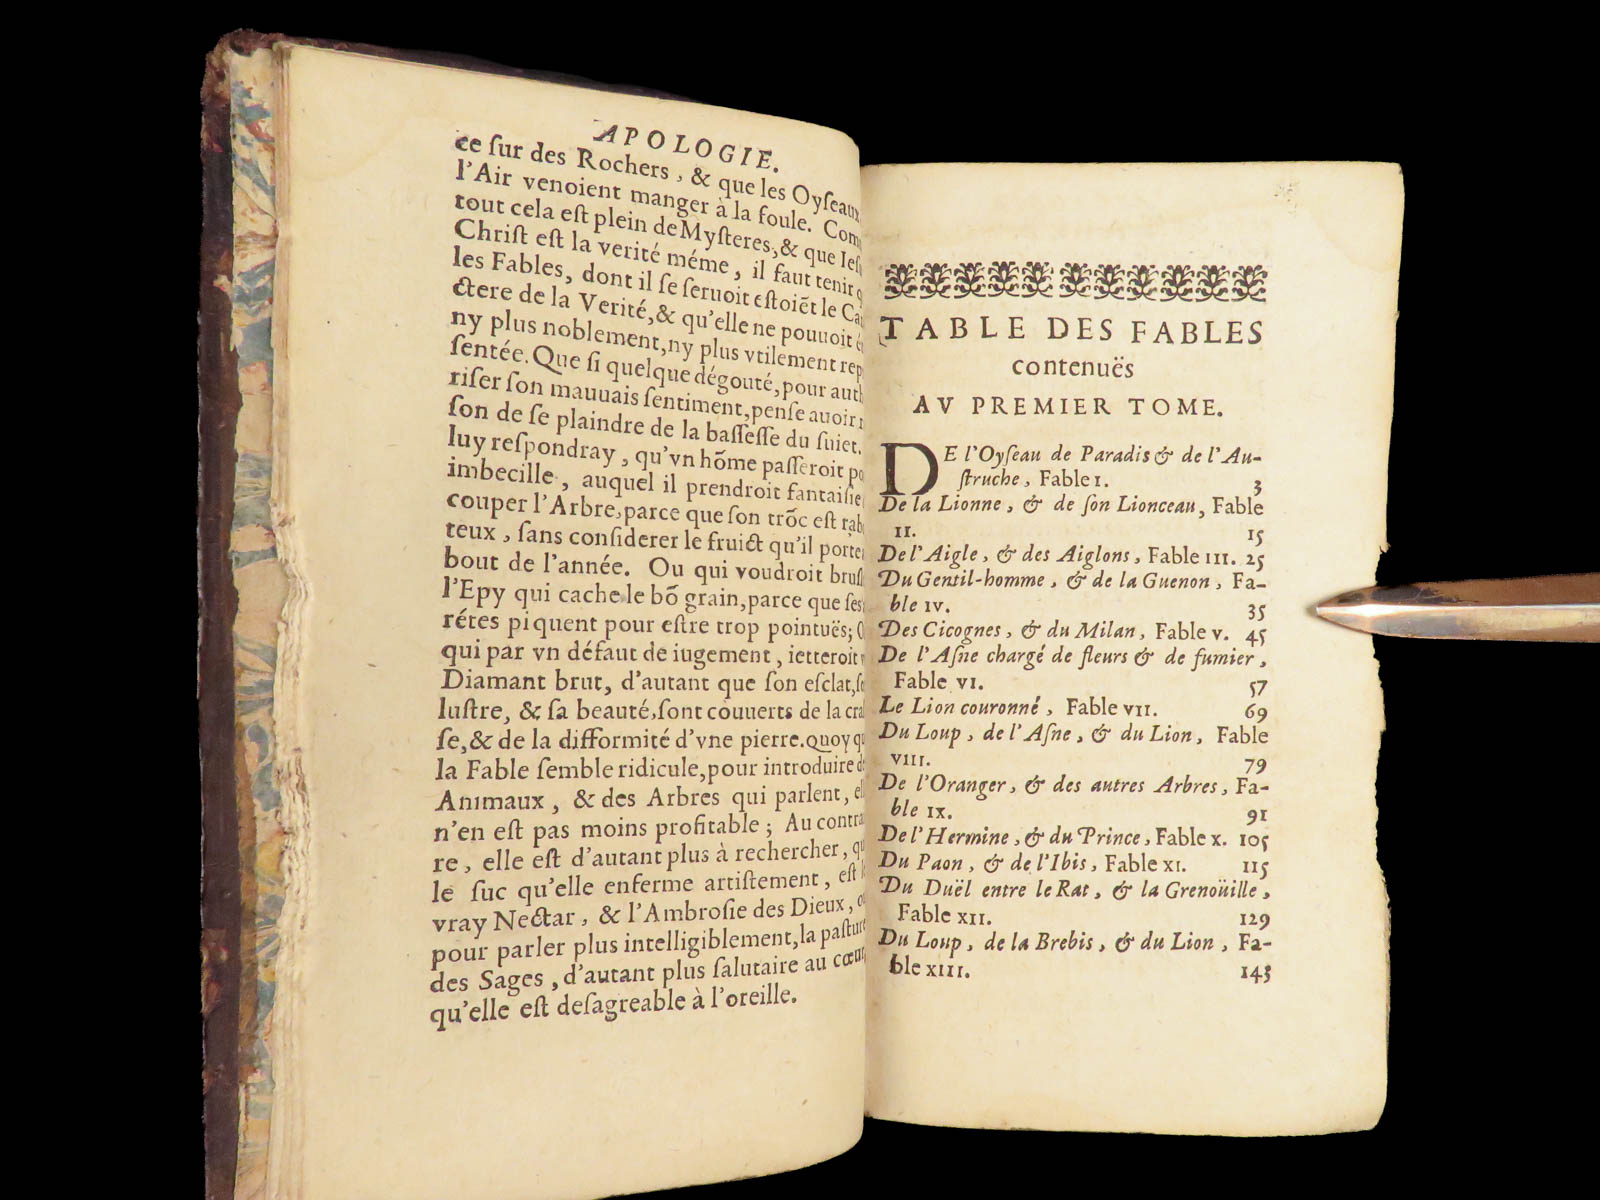 APOLOGIE.
ce ſur des Rochers, & que les Oyſeaux
l'Air venoient manger à la foule. Com
tout cela eſt plein de Myſteres, & que Ieſ
Chriſt eſt la verité méme, il faut tenir q
les Fables, dont il ſe ſeruoit eſtoiẽt le Ca
ctere de la Verité, & qu'elle ne pouuoit é
ny plus noblement, ny plus vtilement rep
ſentée. Que ſi quelque dégouté, pour auth
riſer ſon mauuais ſentiment, penſe auoir r
ſon de ſe plaindre de la baſſeſſe du ſuiet.
luy reſpondray, qu'vn hõme paſſeroit po
imbecille, auquel il prendroit fantaiſie
couper l'Arbre, parce que ſon trõc eſt rab
teux, ſans conſiderer le fruict qu'il porte
bout de l'année. Ou qui voudroit bruſl
l'Epy qui cache le bõ grain, parce que ſes
rétes piquent pour eſtre trop pointuës; O
qui par vn défaut de iugement, ietteroit v
Diamant brut, d'autant que ſon eſclat, ſo
luſtre, & ſa beauté, ſont couuerts de la craſ
ſe, & de la difformité d'vne pierre. Quoy qu
la Fable ſemble ridicule, pour introduire d
Animaux, & des Arbres qui parlent, el
n'en eſt pas moins profitable; Au contra
re, elle eſt d'autant plus à rechercher, qu
le ſuc qu'elle enferme artiſtement, eſt l
vray Nectar, & l'Ambroſie des Dieux, o
pour parler plus intelligiblement, la paſture
des Sages, d'autant plus ſalutaire au cœur,
qu'elle eſt deſagreable à l'oreille.
TABLE DES FABLES
contenuës
AV PREMIER TOME.
DE l'Oyſeau de Paradis & de l'Au-
ſtruche, Fable I. 3
De la Lionne, & de ſon Lionceau, Fable
II. 15
De l'Aigle, & des Aiglons, Fable III. 25
Du Gentil-homme, & de la Guenon, Fa-
ble IV. 35
Des Cicognes, & du Milan, Fable V. 45
De l'Aſne chargé de fleurs & de fumier,
Fable VI. 57
Le Lion couronné, Fable VII. 69
Du Loup, de l'Aſne, & du Lion, Fable
VIII. 79
De l'Oranger, & des autres Arbres, Fa-
ble IX. 91
De l'Hermine, & du Prince, Fable X. 105
Du Paon, & de l'Ibis, Fable XI. 115
Du Duël entre le Rat, & la Grenoüille,
Fable XII. 129
Du Loup, de la Brebis, & du Lion, Fa-
ble XIII. 143